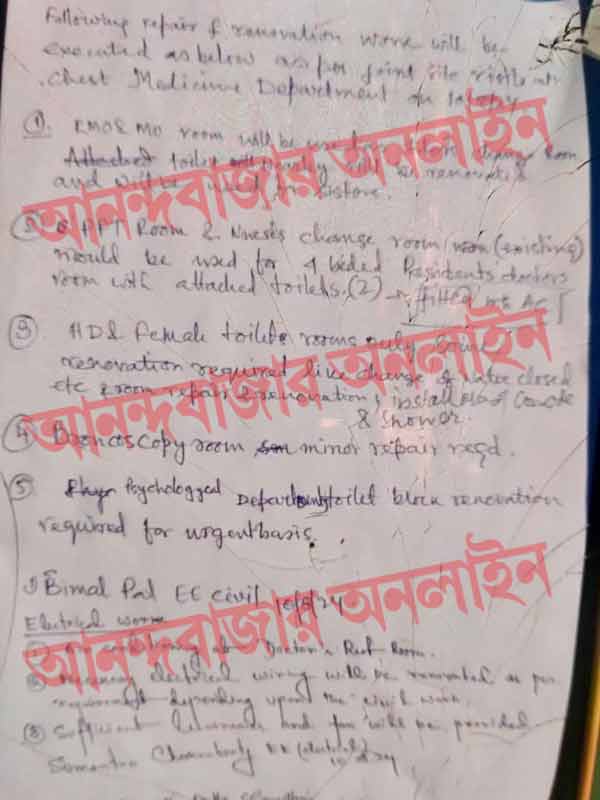 Following repair & renovation work will be
executed as below as per joint site visit at
Chest Medicine Department on
① RMO & MO room will be used for doctors change Room
Attached toilet will be renovated
and will be used for store.
② PPT Room & Nurses change room room (existing)
would be used for 4 beded Residents doctors
room with attached toilets. (2) → fitted with AC
③ HDU female toilets rooms only
renovation required like change of water closed
etc & room repair & renovation, installation of Comode
& Shower.
④ Broncoscopy room minor repair reqd.
⑤ Psychologycal Department toilet block renovation
required for urgent basis.
Bimal Pal EE civil 10/8/24
Electrical work
① Air conditioning at Doctor's Rest Room.
② Necessary electrical wiring will be renovated as per
requirement depending upon the civil work.
③ Sufficient and fan will be provided
EE (electrical)
10/8/24
আনন্দবাজার অনলাইন
আনন্দবাজার অনলাইন
আনন্দবাজার অনলাইন